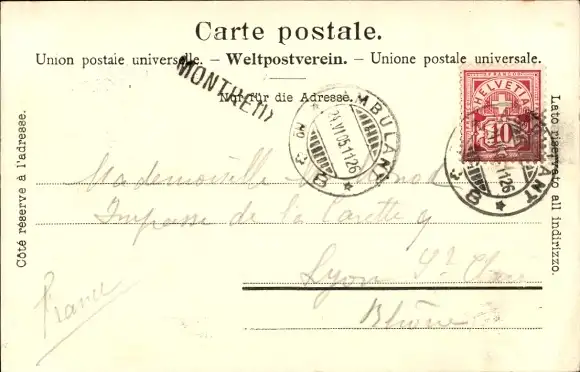 Carte postale.
Union postale universelle. – Weltpostverein. – Unione postale universale.
MONTHEY
Nur für die Adresse.
AMBULANT
24.VI.05.11 26
No 8
HELVETIA
FRANCO
10
AMBULANT
11 26
8
Côté réservé à l'adresse.
Lato riservato all indirizzo.
Mademoiselle
Impasse de la
Lyon St Clair
Rhône
France